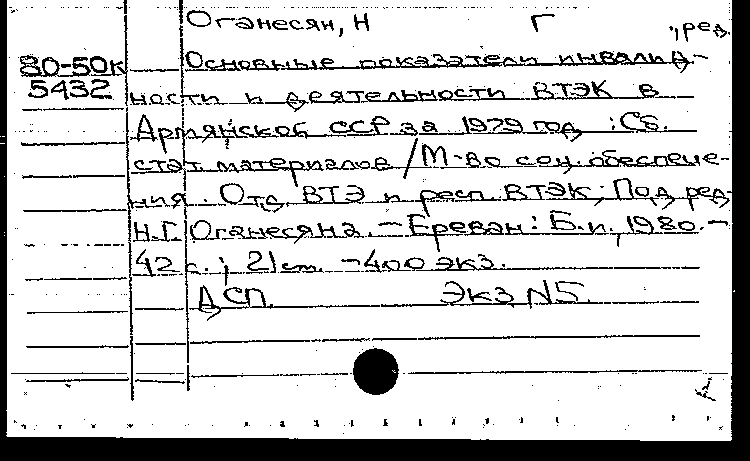 Оганесян, Н Г ,ред.
80-50к Основные показатели инвалид-
5432 ности и деятельности ВТЭК в
Армянской ССР за 1979 год : Сб.
стат. материалов / М-во соц. обеспече-
ния. Отд. ВТЭ и респ. ВТЭК; Под ред.
Н.Г. Оганесяна. – Ереван : Б.и., 1980. –
42 с. ; 21 см. – 400 экз.
ДСП. Экз. N5.